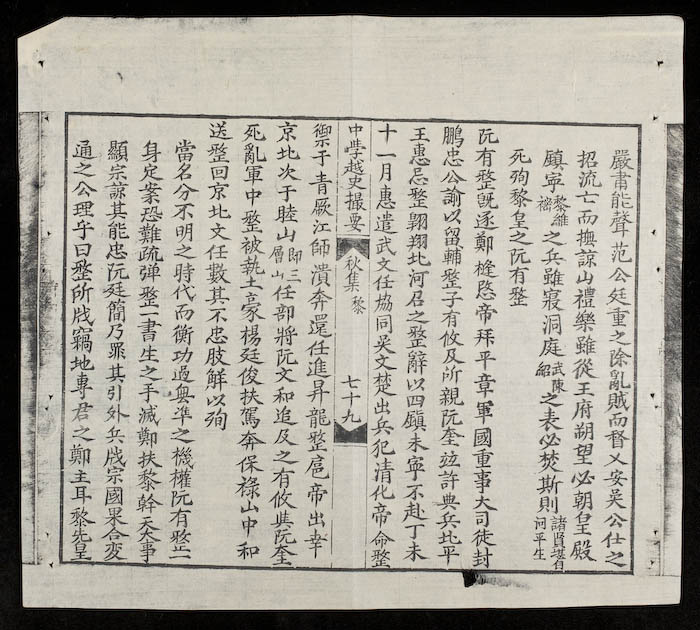 嚴肅能聲范公廷重之除亂賊而督乂安吳公仕之
招流亡而撫諒山禮樂雖從王府朔望必朝皇殿
鎭寧黎維之兵雖寢洞庭武陳紹之表必焚斯則諸賢堪自河平生
死殉黎皇之阮有整
阮有整旣逐鄭槰愍帝拜平章軍國重事大司徒封
鵬忠公諭以留輔整子有攸及所親阮奎竝許典兵北平
王惠忌整翺翔北河召之整辭以四鎭未寧不赴丁未
十一月惠遣武文任協同吳文楚出兵犯清化帝命整
中學越史撮要 秋集 黎 七十九
禦于青厥江師潰奔還任進昇龍整扈帝出幸
京北次于睦山即三層山任部將阮文和追及之有攸與阮奎
死亂軍中整被執土豪楊廷俊扶駕奔保祿山中和
送整回京北文任數其不忠肢解以殉
當名分不明之時代而衡功過與準之機權阮有整一
身定案恐難疏彈整一書生之手滅鄭扶黎幹天大事
顯宗諒其能忠阮廷簡乃罪其引外兵戕宗國果合变
通之公理乎曰整所戕竊地專君之鄭主耳黎先皇